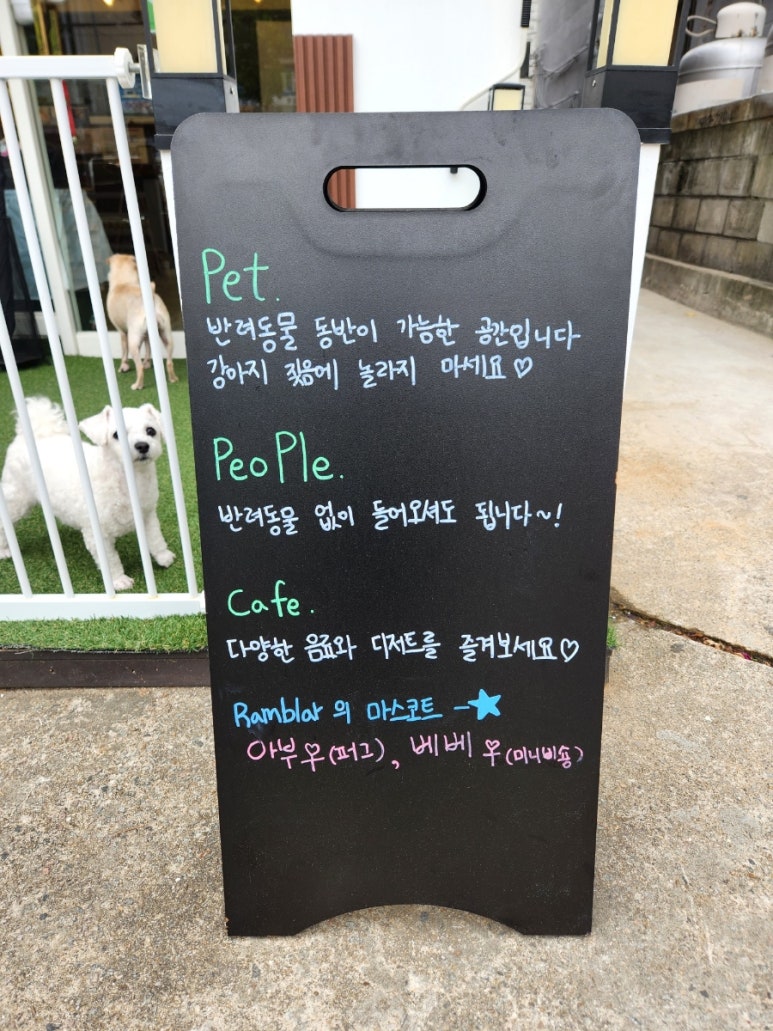 Pet.
반려동물 동반이 가능한 공간입니다
강아지 짖음에 놀라지 마세요♡
PeoPle.
반려동물 없이 들어오셔도 됩니다~!
Cafe.
다양한 음료와 디저트를 즐겨보세요♡
Ramblar의 마스코트 -★
아부♀(퍼그), 베베♀(미니비숑)